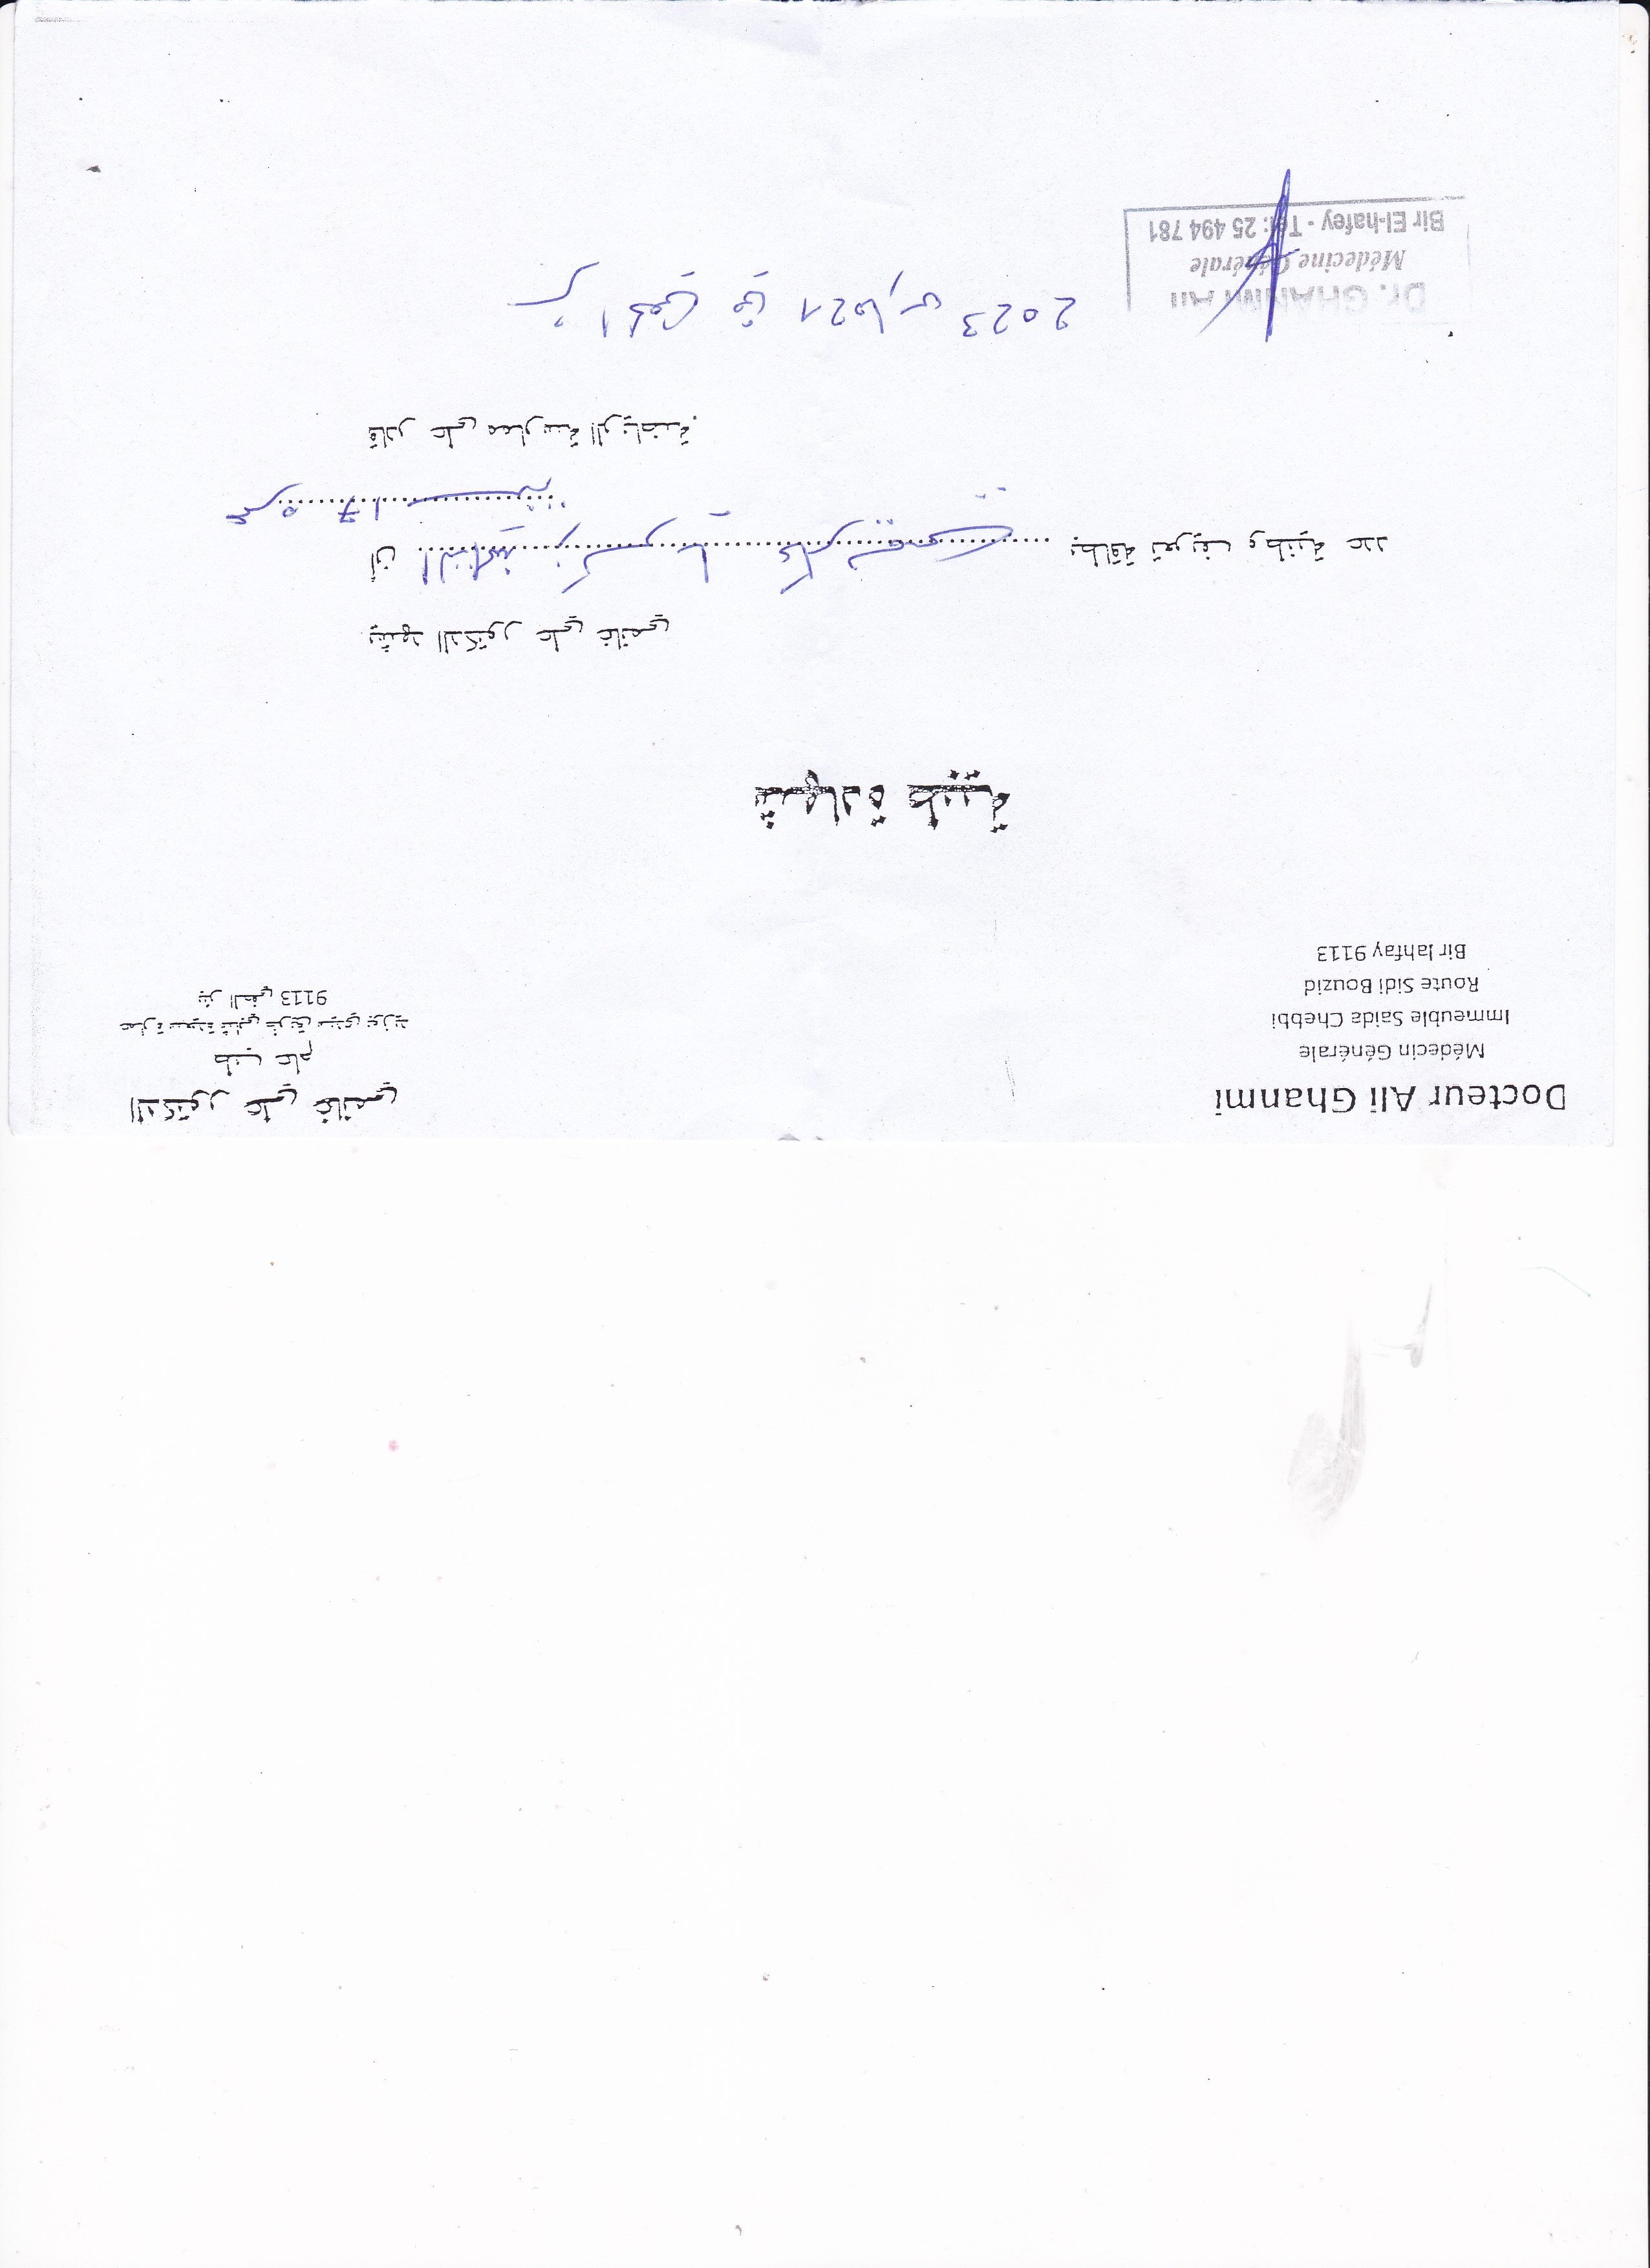 Docteur Ali Ghanmi
Médecin Générale
Immeuble Saida Chebbi
Route Sidi Bouzid
Bir lahfay 9113
الدكتور علي غانمي
طب عام
عمارة سعيدة شابي طريق سيدي بوزيد
بئر الحفي 9113
شهادة طبية
يشهد الدكتور علي غانمي
أن
بطاقة تعريف وطنية عدد
قادر على ممارسة الرياضة.
بئر الحفي في
2023
Dr. GHANMI Ali
Médecine Générale
Bir El-hafey - Tel: 25 494 781